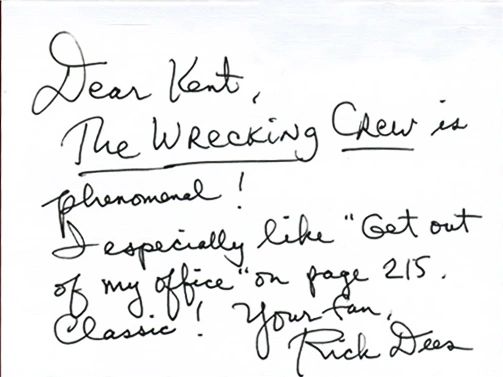 Dear Kent,
The WRECKING CREW is
phenomenal!
I especially like "Get out
of my office" on page 215.
Classic! Your fan,
Rick Dees